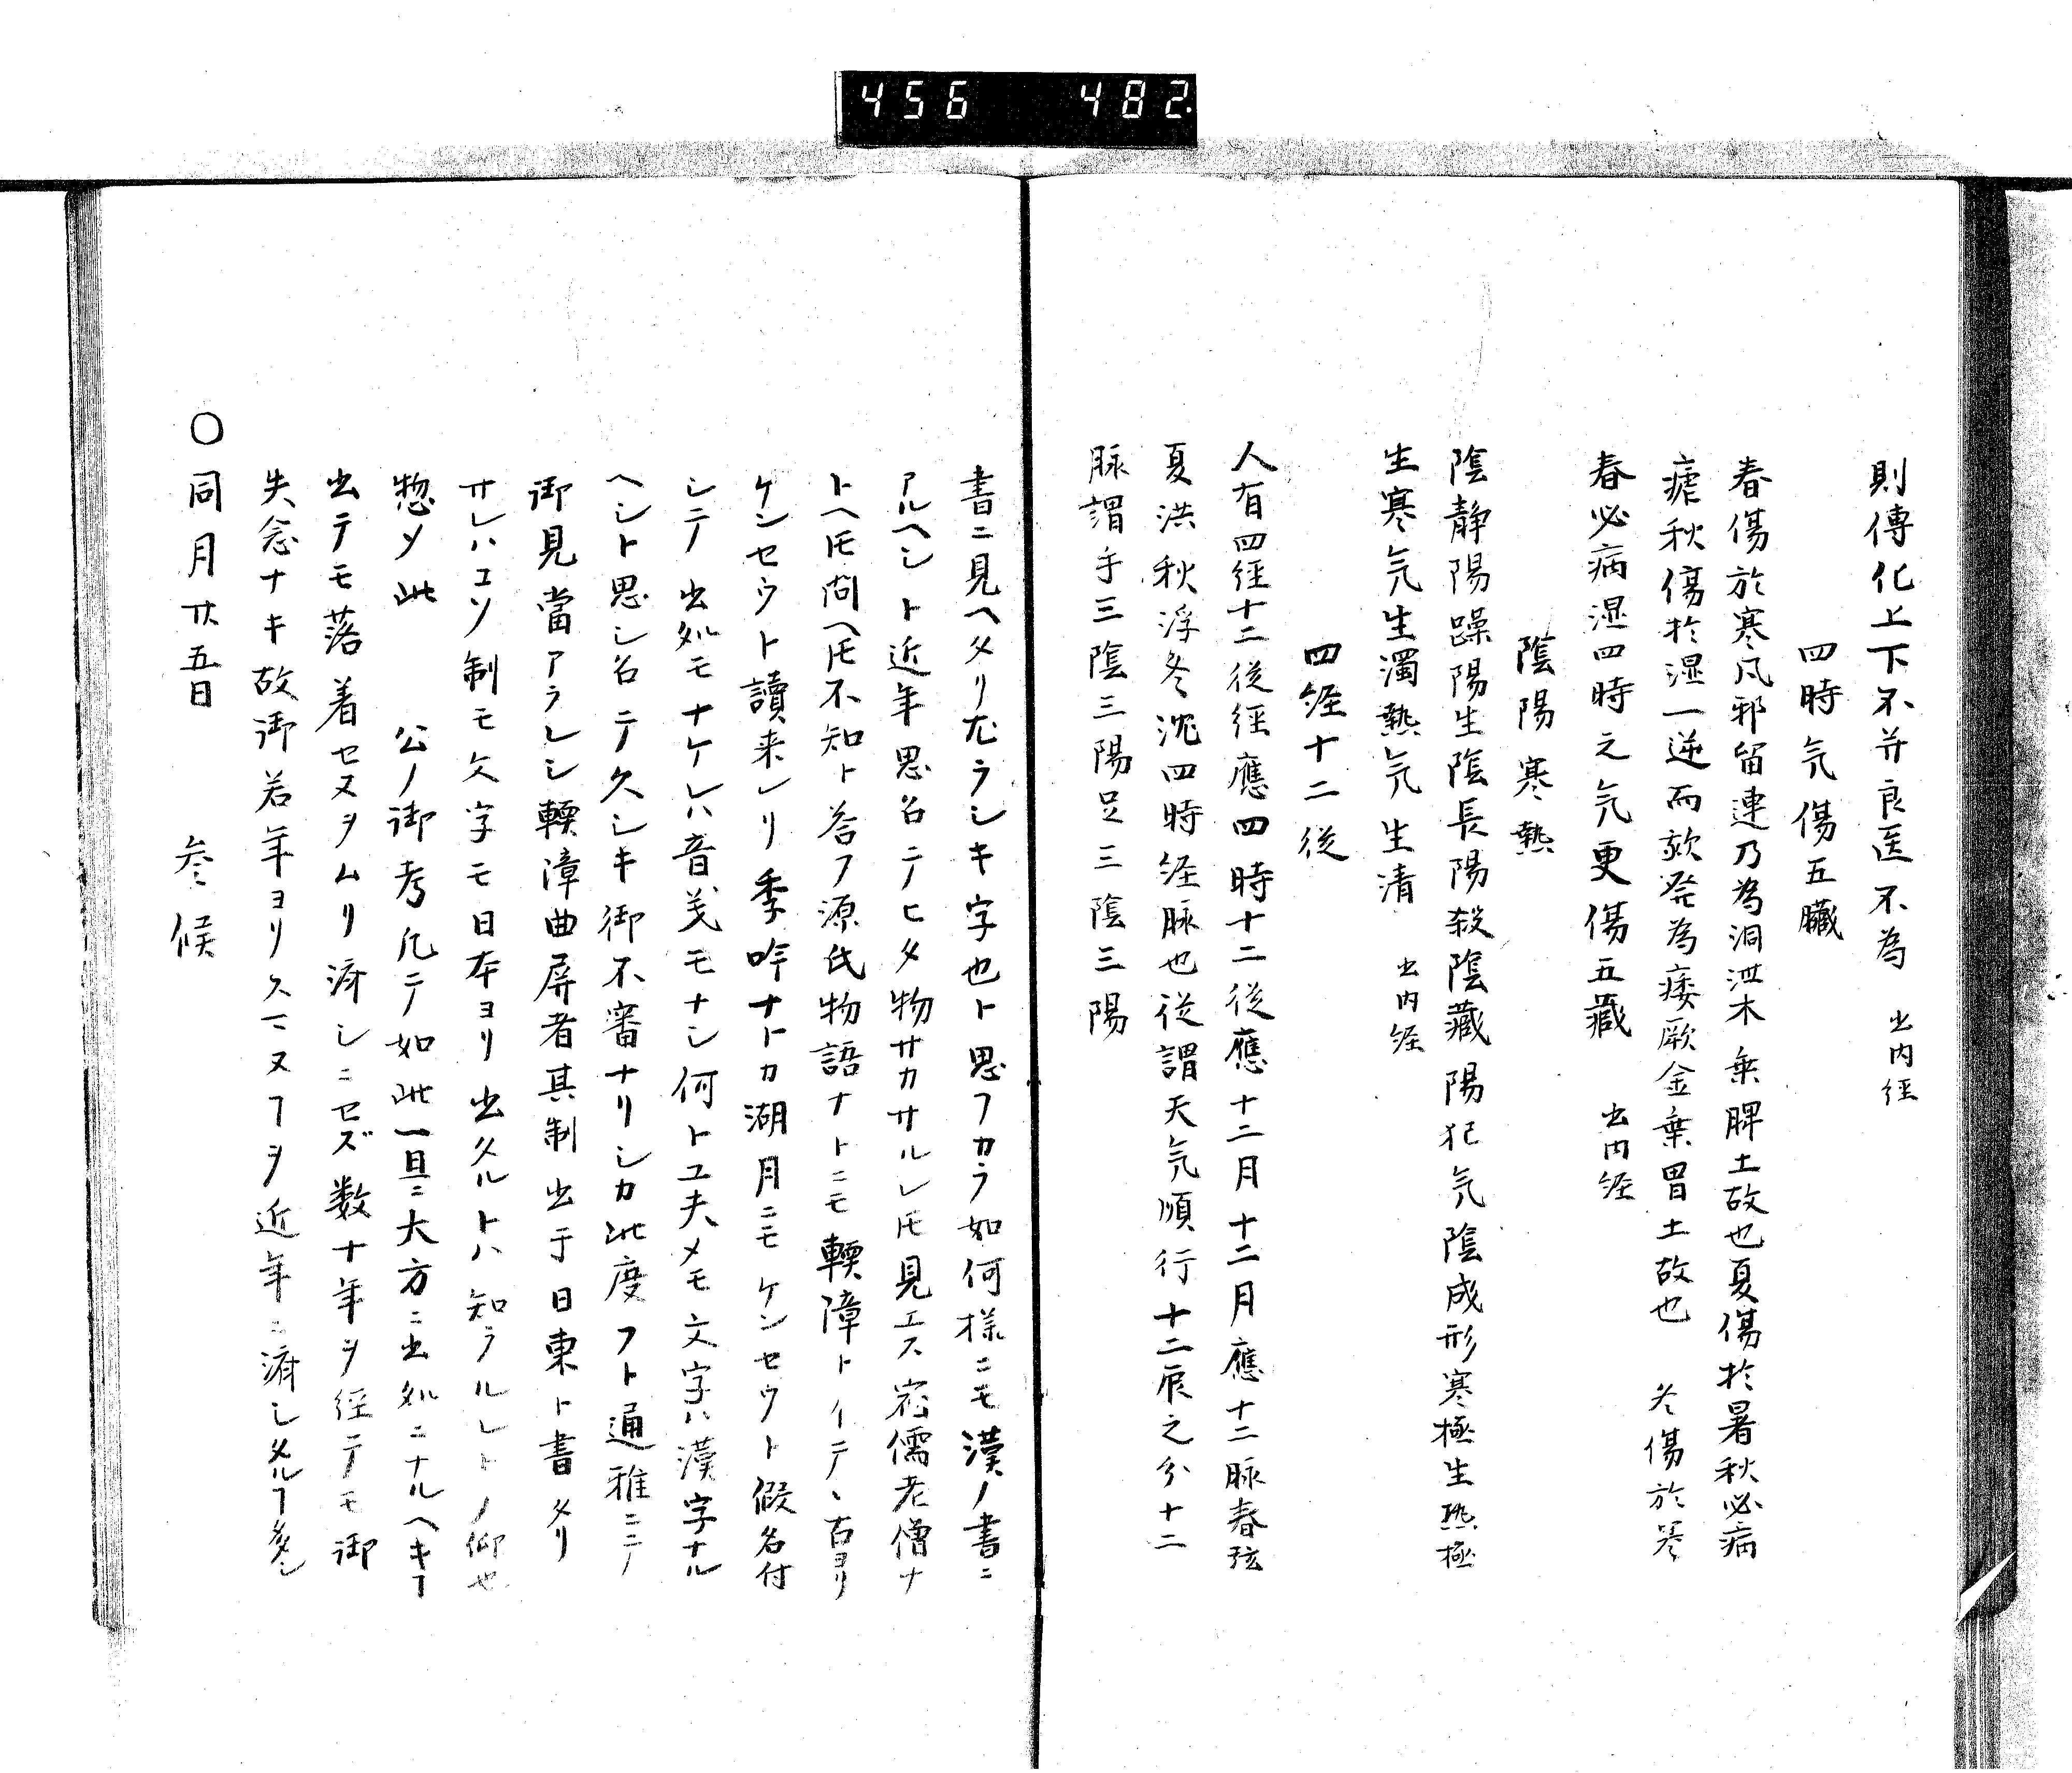 456 482
則傳化上下不并良医不為 出内径
四時気傷五臓
春傷於寒風邪留連乃為洞泄木乗脾土故也夏傷於暑秋必病
瘧秋傷於湿一逆而欬発為痿厥金棄胃土故也 冬傷於寒
春必病湿四時之気更傷五蔵 出内経
陰陽寒熱
陰静陽躁陽生陰長陽殺陰蔵陽犯気陰成形寒極生熱極
生寒気生濁熱気生清 出内経
四経十二従
人有四経十二従経應四時十二従應十二月十二月應十二脉春弦
夏洪秋浮冬沈四時経脉也従謂天気順行十二辰之分十二
脉謂手三陰三陽足三陰三陽
書ニ見ヘタリ尤ラシキ字也ト思フカラ如何様ニモ漢ノ書ニ
アルヘシト近年思召テヒタ物サカサルレ𪜈見エス宿儒老僧ナ
トヘ𪜈問ヘ𪜈不知ト答フ源氏物語ナトニモ輭障トイテ丶古ヨリ
ケンセウト讀来レリ季吟ナトカ湖月ニモケンセウト假名付
シテ出処モナケレハ音義モナシ何ト工夫メモ文字ハ漢字ナル
ヘシト思シ召テ久シキ御不審ナリシカ此度フト通雅ニテ
御見當アラレシ輭漳曲屏者其制出于日東ト書タリ
サレハコソ制モ文字モ日本ヨリ出タルトハ知ラルレトノ仰也
惣メ此 公ノ御考凡テ如此一旦ニ大方ニ出処ニナルヘキヿ
出テモ落着セヌヲムリ済シニセズ数十年ヲ経テモ御
失念ナキ故御若年ヨリスマヌヿヲ近年ニ済シタルヿ多シ
〇同月廿五日 参候